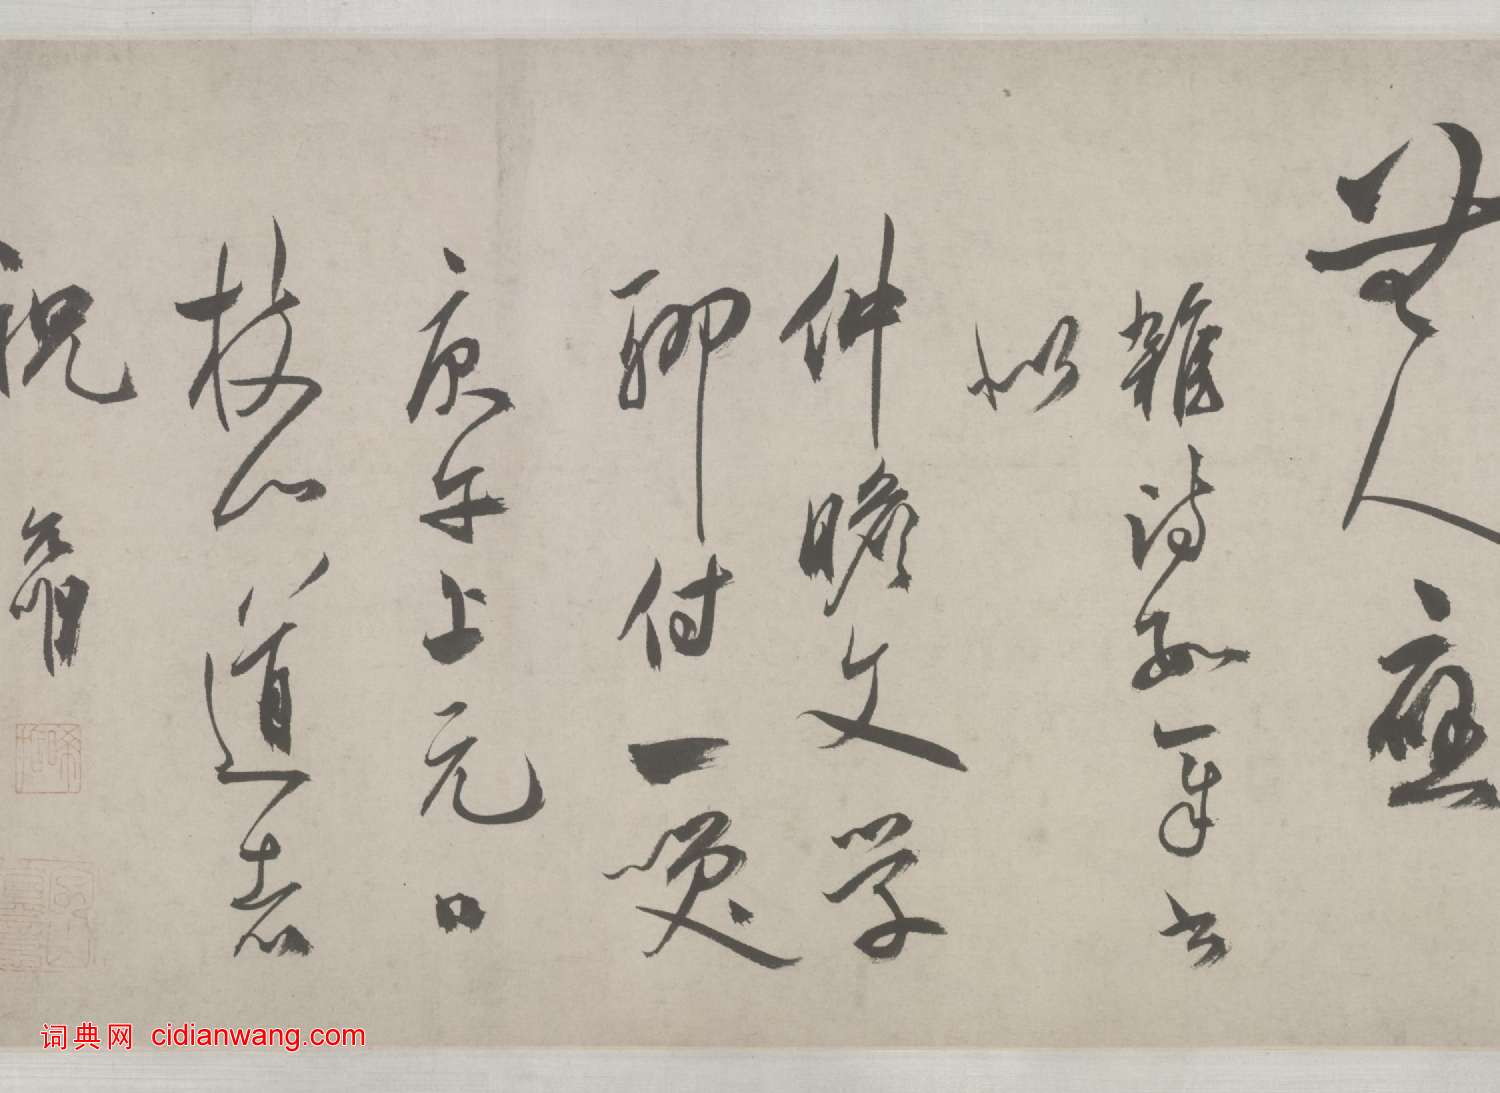 無人應
雜詩章書
似
仲瞻文學
聊付一咲
庚午上元日
枝山道
祝允明
词典网 cidianwang.com